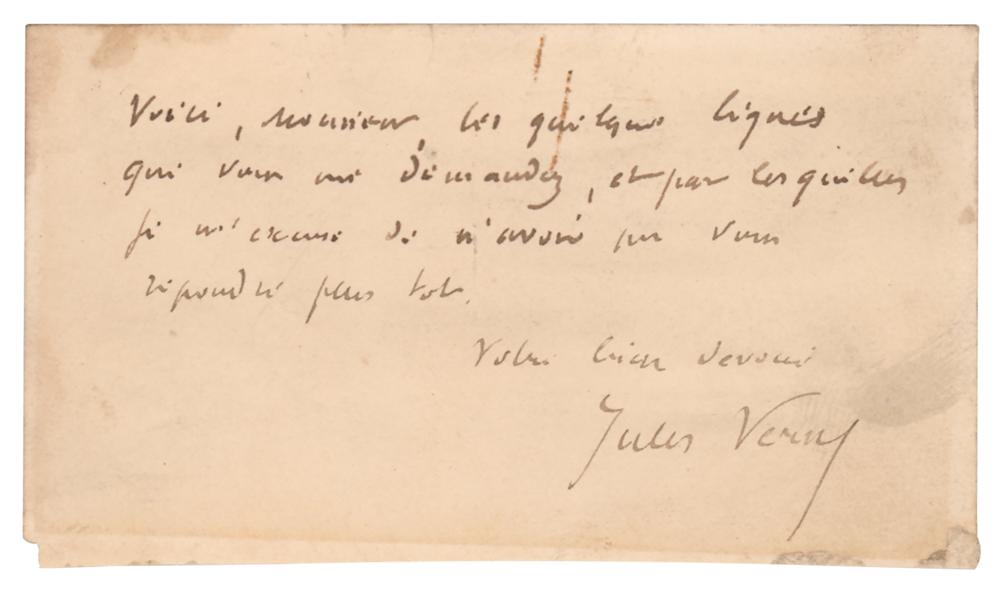 Voici, Monsieur, les quelques lignes
que vous me demandez, et par lesquelles
je m'excuse de n'avoir pu vous
répondre plus tôt.
Votre bien dévoué
Jules Verne